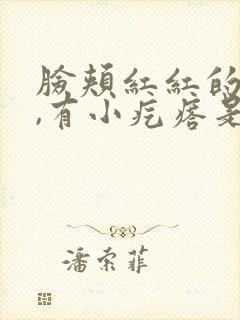 臉頰紅紅的
,有小疙瘩是
潘索菲